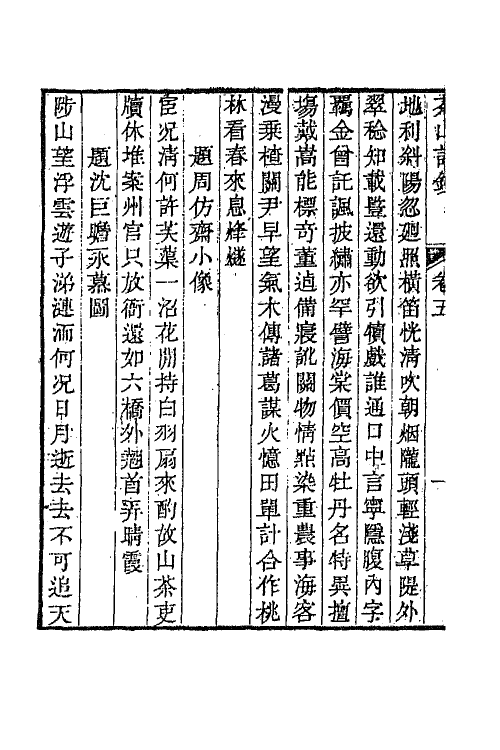 卷五
地利斜陽忽迴照橫笛恍清吹朝烟隴頭輕淺草隄外
翠稔知載豋還動欲引犢戲誰通口中言寧隱腹內字
羈金曾託諷披繡亦罕譬海棠價空高牡丹名特異擅
塲戴嵩能標奇董逌備寢訛關物情點染重農事海客
漫乘槎關尹早望氣木傳諸葛謀火憶田單計合作桃
林看春來息烽燧
題周仿齋小像
宦况清何許芙蕖一沼花閒持白羽扇來酌故山茶吏
牘休堆案州官只放衙還如六橋外翹首弄晴霞
題沈巨瞻永慕圖
陟山望浮雲遊子涕漣洏何况日月逝去去不可追天